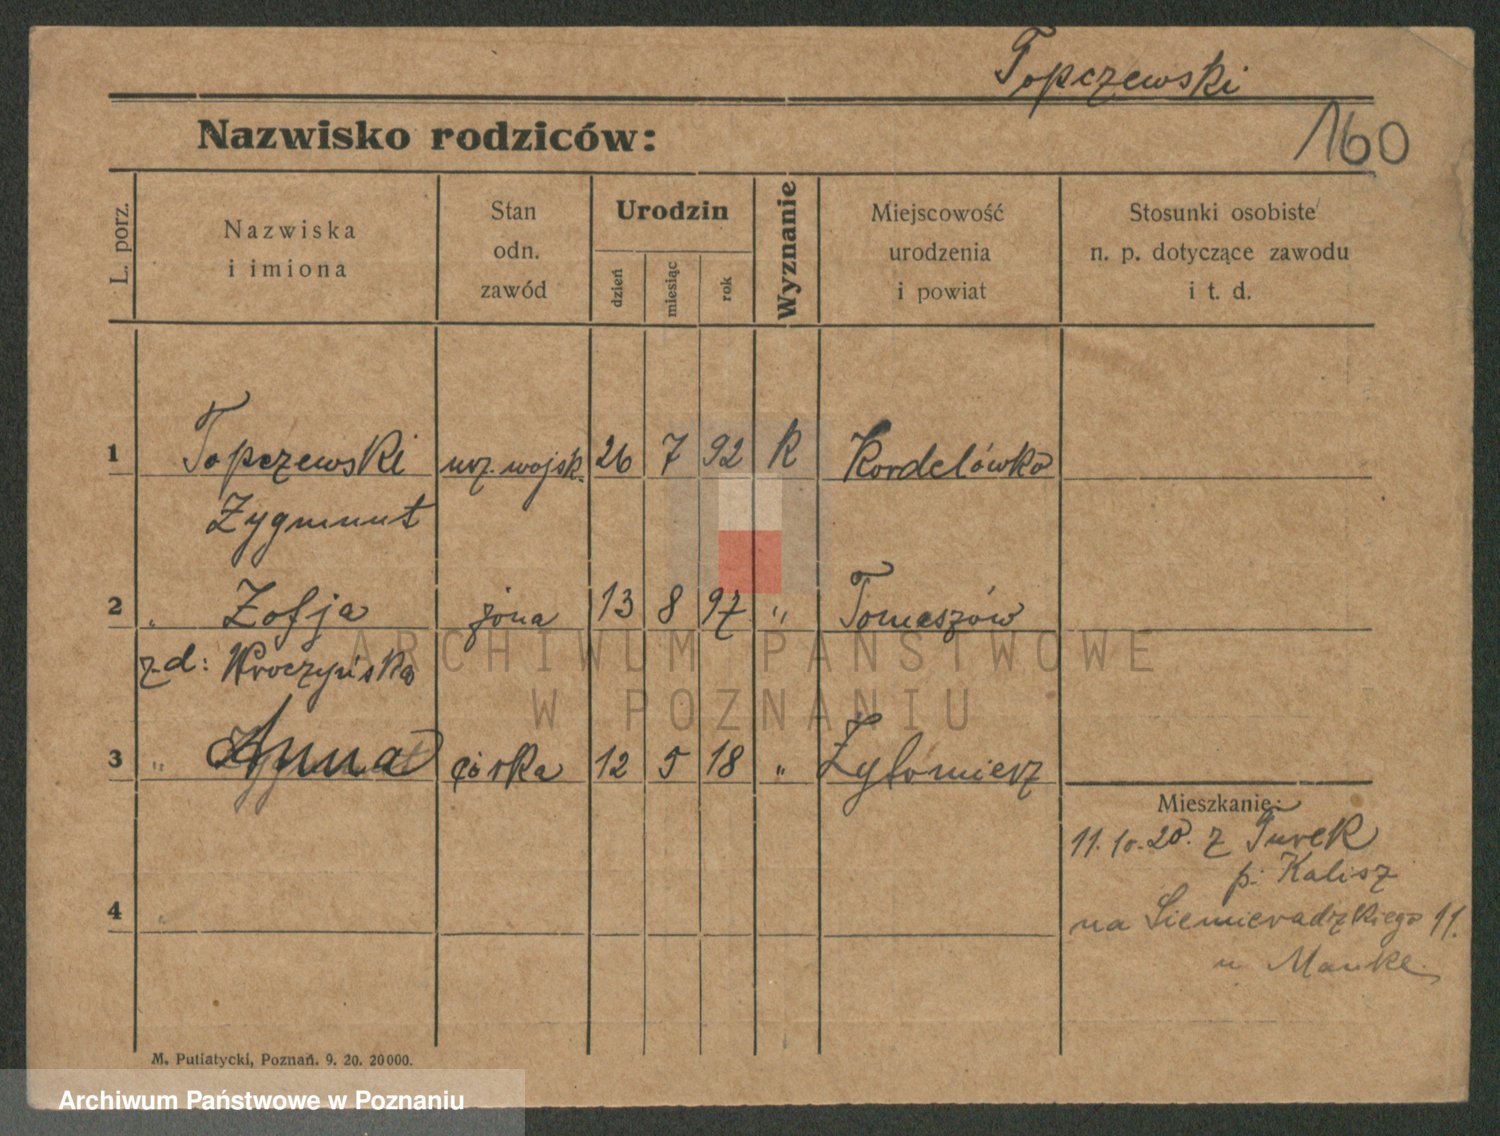 Topczewski
160
Nazwisko rodziców:
L. porz.
Nazwiska
i imiona
Stan
odn.
zawód
Urodzin
dzień
miesiąc
rok
Wyznanie
Miejscowość
urodzenia
i powiat
Stosunki osobiste
n. p. dotyczące zawodu
i t. d.
1 Topczewski urz. wojsk. 26 7 92 K Kordelówka
Zygmunt
2 „ Zofja żona 13 8 97 „ Tomaszów
z d: Kroczyńska
3 „ Anna córka 12 5 18 „ Żytomierz
Mieszkanie:
11. 10. 20. z Turek
p. Kalisz
4
na Siemieradzkiego 11.
u Manke
M. Putiatycki, Poznań. 9. 20. 20000.
ARCHIWUM PAŃSTWOWE
W POZNANIU
Archiwum Państwowe w Poznaniu